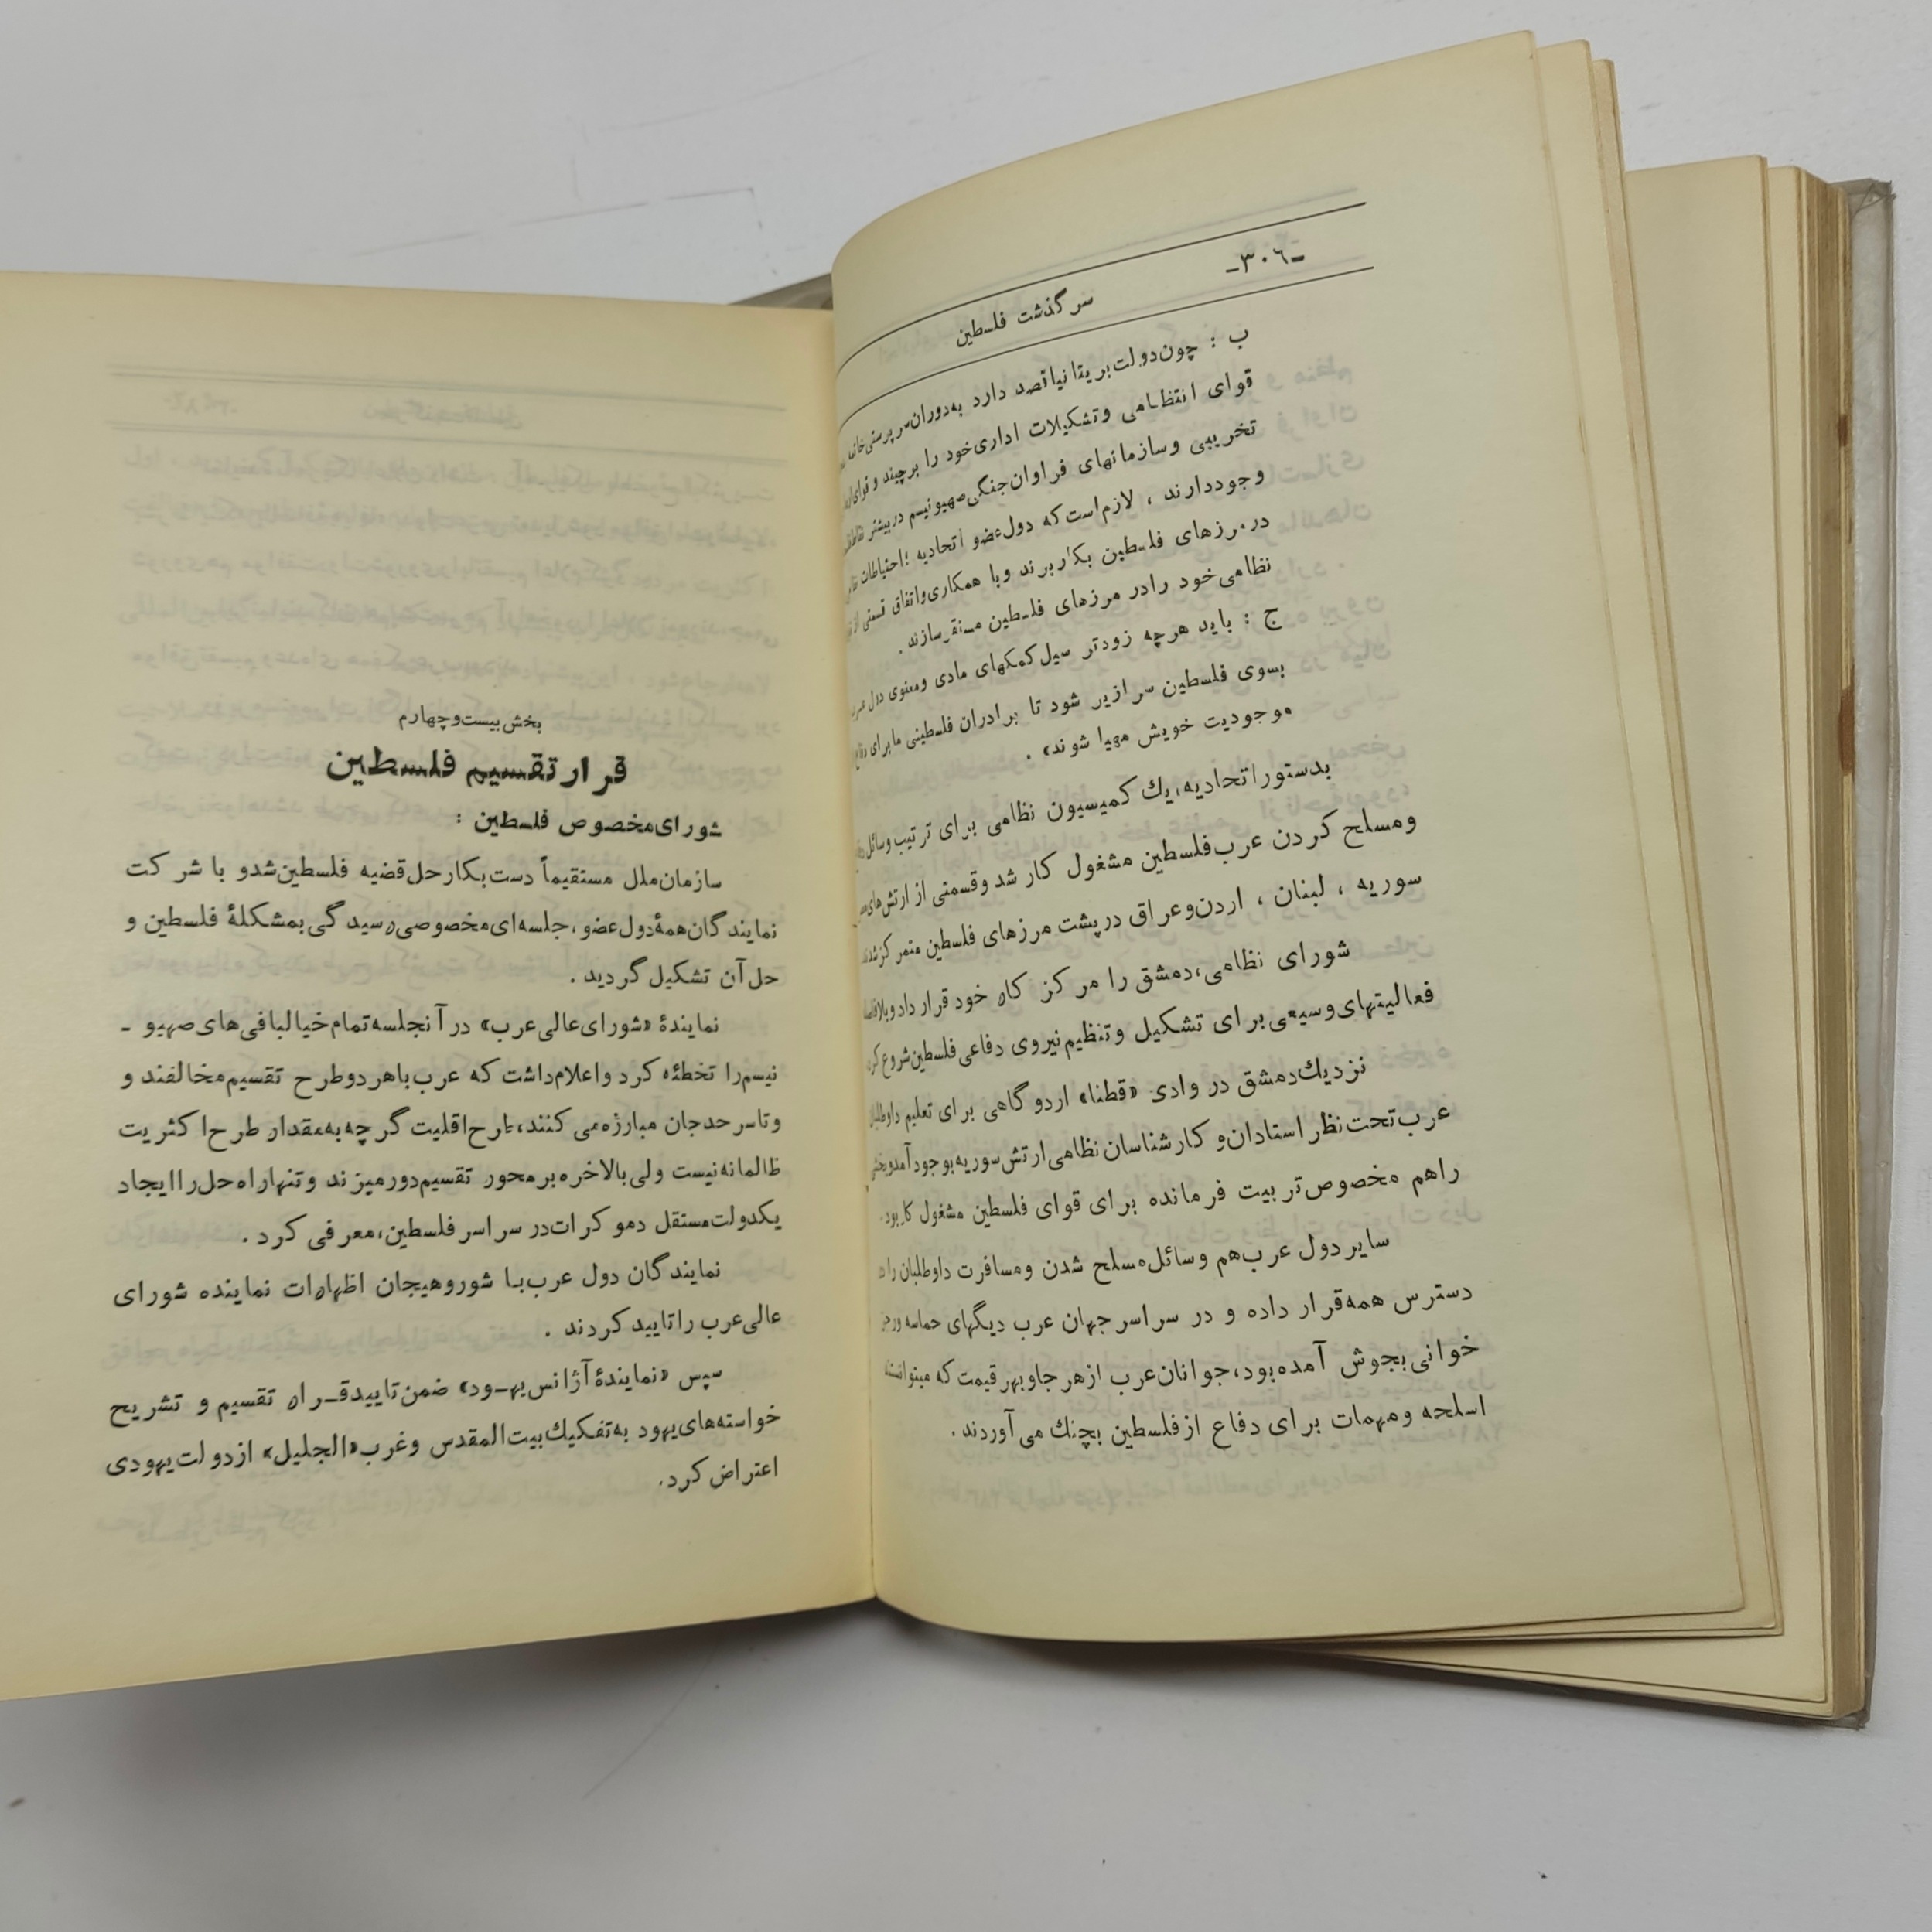 -٣٠٦-
سرگذشت فلسطین
ب : چون دولت بریتانیا قصد دارد به دوران سرپرستی خاتمه
قوای انتظامی و تشکیلات اداری خود را برچیند و قوای
تخریبی و سازمانهای فراوان جنگی صهیونیسم در بیشتر نقاط
وجود دارند ، لازم است که دول عضو اتحادیه ؛ احتیاطات
در مرزهای فلسطین بکار برند و با همکاری و اتفاق قسمتی از
نظامی خود را در مرزهای فلسطین مستقر سازند .
ج : باید هر چه زودتر سیل کمکهای مادی و معنوی دول
بسوی فلسطین سرازیر شود تا برادران فلسطینی ما برای دفاع
موجودیت خویش مهیا شوند» .
بدستور اتحادیه، یك کمیسیون نظامی برای ترتیب وسائل
و مسلح کردن عرب فلسطین مشغول کار شد و قسمتی از ارتش های
سوریه ، لبنان ، اردن و عراق در پشت مرزهای فلسطین متمرکز شدند
شورای نظامی، دمشق را مرکز کار خود قرار داد و بلافاصله
فعالیتهای وسیعی برای تشکیل و تنظیم نیروی دفاعی فلسطین شروع کرد
نزدیك دمشق در وادی «قطنا» اردوگاهی برای تعلیم داوطلبان
عرب تحت نظر استادان و کارشناسان نظامی ارتش سوریه بوجود آمد و بخشی
را هم مخصوص تربیت فرمانده برای قوای فلسطین مشغول کار بود.
سایر دول عرب هم وسائل مسلح شدن و مسافرت داوطلبان را در
دسترس همه قرار داده و در سراسر جهان عرب دیگهای حماسه و رجز
خوانی بجوش آمده بود، جوانان عرب از هر جا و بهر قیمت که میتوانستند
اسلحه و مهمات برای دفاع از فلسطین بچنك می آوردند .
بخش بیست و چهارم
قرار تقسیم فلسطین
شورای مخصوص فلسطین :
سازمان ملل مستقیماً دست بکار حل قضیه فلسطین شد و با شرکت
نمایندگان همهٔ دول عضو، جلسه ای مخصوصی رسیدگی بمشکلهٔ فلسطین و
حل آن تشکیل گردید .
نمایندهٔ «شورای عالی عرب» در آنجلسه تمام خیالبافی های صهیو -
نیسم را تخطئه کرد و اعلام داشت که عرب با هر دو طرح تقسیم مخالفند و
و تا سر حد جان مبارزه می کنند، طرح اقلیت گرچه به مقدار طرح اکثریت
ظالمانه نیست ولی بالاخره بر محور تقسیم دور میزند و تنها راه حل را ایجاد
یکدولت مستقل دموکرات در سراسر فلسطین، معرفی کرد .
نمایندگان دول عرب با شور و هیجان اظهارات نماینده شورای
عالی عرب را تایید کردند .
سپس «نمایندهٔ آژانس یهود» ضمن تایید قرار تقسیم و تشریح
خواسته های یهود به تفکیك بیت المقدس و غرب «الجلیل» از دولت یهودی
اعتراض کرد.